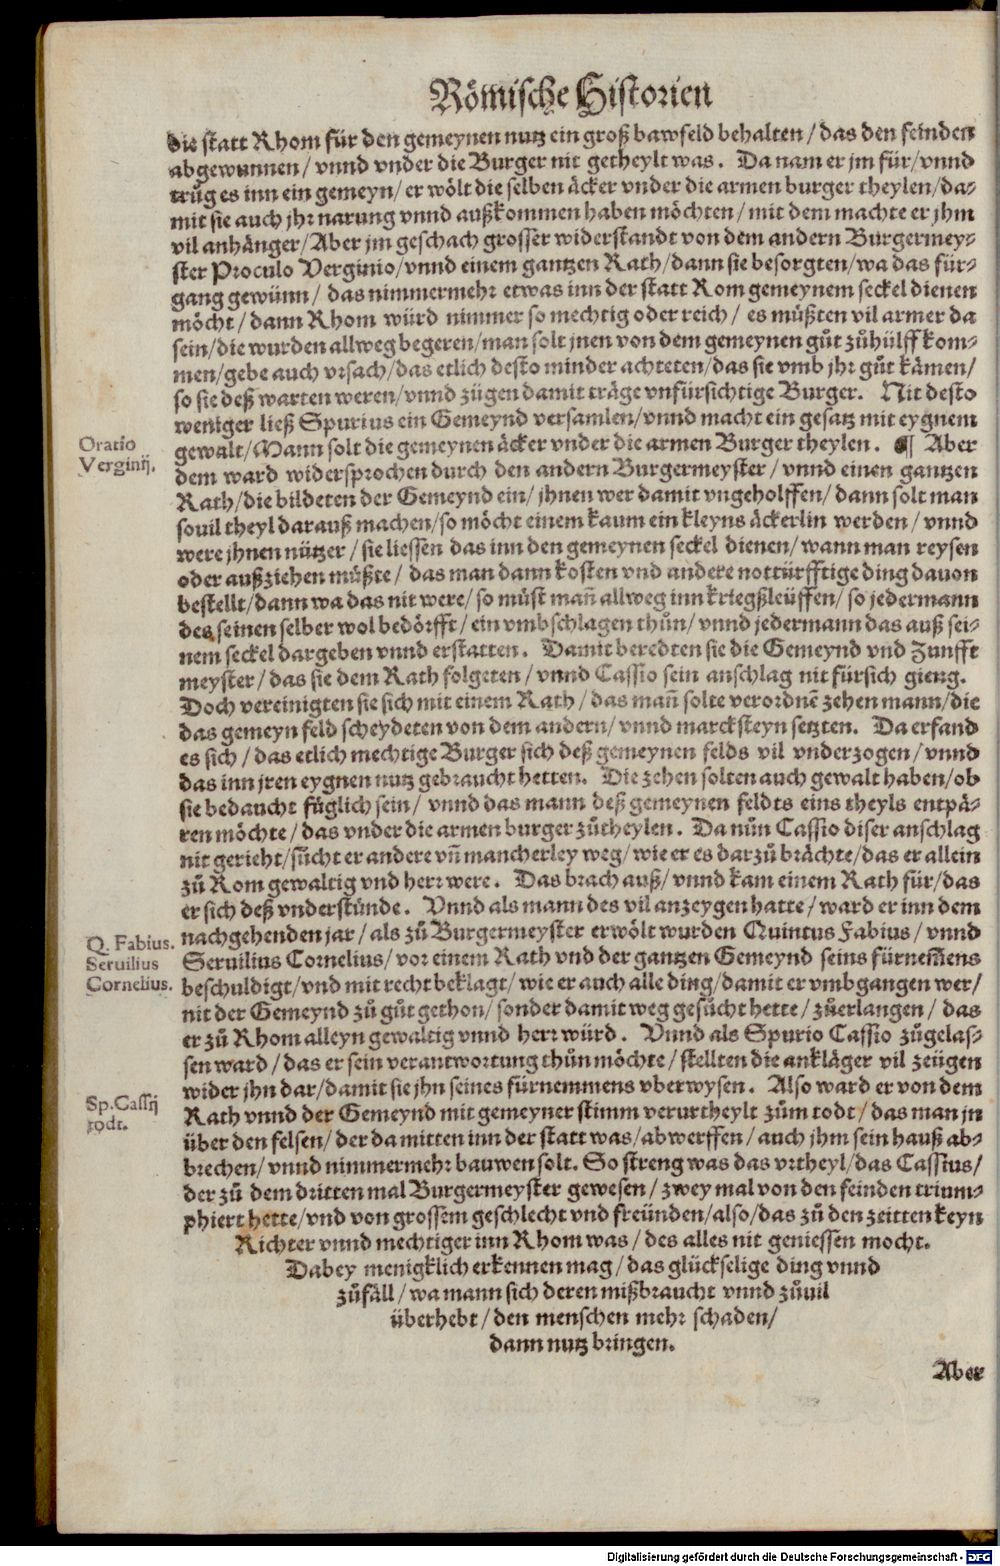 Römische Historien
die statt Rhom für den gemeynen nutz ein groß bawfeld behalten/ das den feinden
abgewunnen/ vnnd vnder die Burger nit getheylt was. Da nam er jm für/ vnnd
trůg es inn ein gemeyn/ er wölt die selben äcker vnder die armen burger theylen/ da⸗
mit sie auch jhr narung vnnd außkommen haben möchten/ mit dem machte er jhm
vil anhänger/ Aber jm geschach grosser widerstandt von dem andern Burgermey⸗
ster Proculo Verginio/ vnnd einem gantzen Rath/ dann sie besorgten/ wa das für⸗
gang gewünn/ das nimmermehr etwas inn der statt Rom gemeynem seckel dienen
möcht/ dann Rhom würd nimmer so mechtig oder reich/ es müßten vil armer da
sein/ die wurden allweg begeren/ man solt jnen von dem gemeynen gůt zůhülff kom⸗
men/ gebe auch vrsach/ das etlich desto minder achteten/ das sie vmb jhr gůt kämen/
so sie deß warten weren/ vnnd zügen damit träge vnfürsichtige Burger. Nit desto
weniger ließ Spurius ein Gemeynd versamlen/ vnnd macht ein gesatz mit eygnem
Oratio
Verginij.
gewalt/ Mann solt die gemeynen äcker vnder die armen Burger theylen. ¶ Aber
dem ward widersprochen durch den andern Burgermeyster/ vnnd einen gantzen
Rath/ die bildeten der Gemeynd ein/ jhnen wer damit vngeholffen/ dann solt man
souil theyl darauß machen/ so möcht einem kaum ein kleyns äckerlin werden/ vnnd
were jhnen nützer/ sie liessen das inn den gemeynen seckel dienen/ wann man reysen
oder außziehen müßte/ das man dann kosten vnd andere nottürfftige ding dauon
bestellt/ dann wa das nit were/ so müst mañ allweg inn kriegßleüffen/ so jedermann
des seinen selber wol bedörfft/ ein vmbschlagen thůn/ vnnd jedermann das auß sei⸗
nem seckel dargeben vnnd erstatten. Damit beredten sie die Gemeynd vnd Zunfft
meyster/ das sie dem Rath folgeten/ vnnd Cassio sein anschlag nit fürsich gieng.
Doch vereinigten sie sich mit einem Rath/ das mañ solte verordnē zehen mann/ die
das gemeyn feld scheydeten von dem andern/ vnnd marcksteyn setzten. Da erfand
es sich/ das etlich mechtige Burger sich deß gemeynen felds vil vnderzogen/ vnnd
das inn jren eygnen nutz gebraucht hetten. Die zehen solten auch gewalt haben/ ob
sie bedaucht füglich sein/ vnnd das mann deß gemeynen feldts eins theyls entpä⸗
ren möchte/ das vnder die armen burger zůtheylen. Da nůn Cassio diser anschlag
nit gerieht/ sůcht er andere vñ mancherley weg/ wie er es darzů brächte/ das er allein
zů Rom gewaltig vnd herr were. Das brach auß/ vnnd kam einem Rath für/ das
er sich deß vnderstünde. Vnnd als mann des vil anzeygen hatte/ ward er inn dem
Q. Fabius.
Seruilius
Cornelius.
nachgehenden jar/ als zů Burgermeyster erwölt wurden Quintus Fabius/ vnnd
Seruilius Cornelius/ vor einem Rath vnd der gantzen Gemeynd seins fürnem̃ens
beschuldigt/ vnd mit recht beklagt/ wie er auch alle ding/ damit er vmbgangen wer/
nit der Gemeynd zů gůt gethon/ sonder damit weg gesůcht hette/ zůerlangen/ das
er zů Rhom alleyn gewaltig vnnd herr würd. Vnnd als Spurio Cassio zůgelas⸗
sen ward/ das er sein verantwortung thůn möchte/ stellten die ankläger vil zeügen
wider jhn dar/ damit sie jhn seines fürnemmens vberwysen. Also ward er von dem
Sp. Cassij
todt.
Rath vnnd der Gemeynd mit gemeyner stimm verurtheylt zům todt/ das man jn
über den felsen/ der da mitten inn der statt was/ abwerffen/ auch jhm sein hauß ab⸗
brechen/ vnnd nimmermehr bauwen solt. So streng was das vrtheyl/ das Cassius/
der zů dem dritten mal Burgermeyster gewesen/ zwey mal von den feinden trium⸗
phiert hette/ vnd von grossem geschlecht vnd freünden/ also/ das zů den zeitten keyn
Richter vnnd mechtiger inn Rhom was/ des alles nit geniessen mocht.
Dabey menigklich erkennen mag/ das glückselige ding vnnd
zůfäll/ wa mann sich deren mißbraucht vnnd zůuil
überhebt/ den menschen mehr schaden/
dann nutz bringen.
Aber
Digitalisierung gefördert durch die Deutsche Forschungsgemeinschaft - DFG